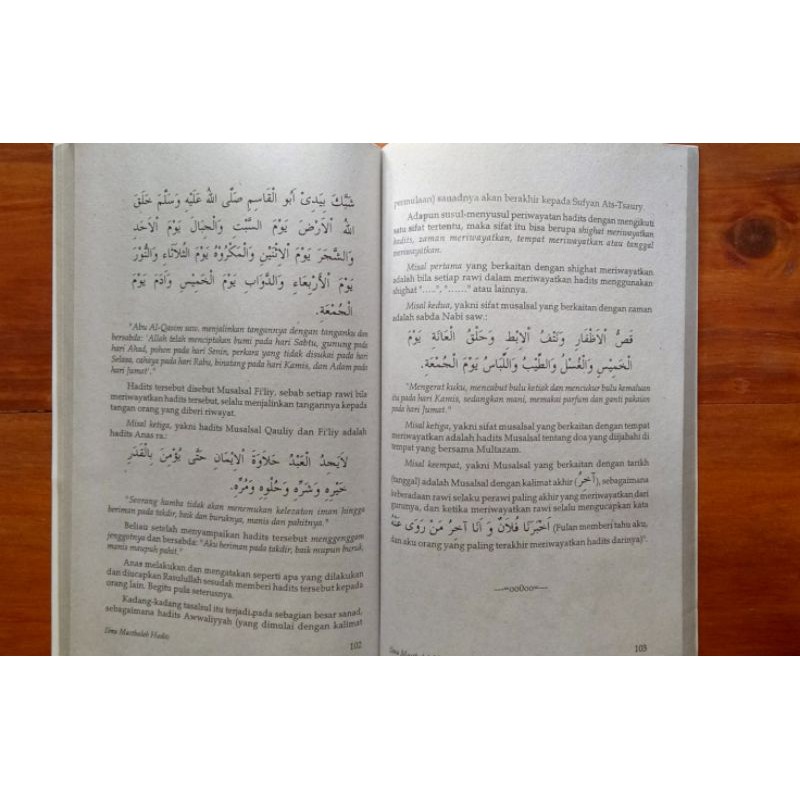 شَبَّكَ بِيَدِىْ اَبُو الْقَاسِمِ صَلَّى اللهُ عَلَيْهِ وَسَلَّمَ خَلَقَ
اللهُ اْلاَرْضَ يَوْمَ السَّبْتِ وَالْجِبَالَ يَوْمَ اْلاَحَدِ
وَالشَّجَرَ يَوْمَ اْلاِثْنَيْنِ وَالْمَكْرُوْهَ يَوْمَ الثُّلاَثَاءِ وَالنُّوْرَ
يَوْمَ اْلأَرْبِعَاءِ وَالدَّوَابَ يَوْمَ الْخَمِيْسِ وَآدَمَ يَوْمَ
الْجُمْعَةِ.
"Abu Al-Qasim saw. menjalinkan tangannya dengan tanganku dan
bersabda: 'Allah telah menciptakan bumi pada hari Sabtu, gunung pada
hari Ahad, pohon pada hari Senin, perkara yang tidak disukai pada hari
Selasa, cahaya pada hari Rabu, binatang pada hari Kamis, dan Adam pada
hari Jumat'."
Hadits tersebut disebut Musalsal Fi'liy, sebab setiap rawi bila
meriwayatkan hadits tersebut, selalu menjalinkan tangannya kepada
tangan orang yang diberi riwayat.
Misal ketiga, yakni hadits Musalsal Qauliy dan Fi'liy adalah
hadits Anas ra.:
لاَيَجِدُ الْعَبْدُ حَلاَوَةَ اْلاِيْمَانِ حَتَّى يُؤْمِنَ بِالْقَدَرِ
خَيْرِهِ وَشَرِّهِ وَحُلُوِهِ وَمُرِّهِ.
"Seorang hamba tidak akan menemukan kelezatan iman hingga
beriman pada takdir, baik dan buruknya, manis dan pahitnya."
Beliau setelah menyampaikan hadits tersebut menggenggam
jenggotnya dan bersabda: "Aku beriman pada takdir, baik maupun buruk,
manis maupub pahit."
Anas melakukan dan mengatakan seperti apa yang dilakukan
dan diucapkan Rasulullah sesudah memberi hadits tersebut kepada
orang lain. Begitu pula seterusnya.
Kadang-kadang tasalsul itu terjadi pada sebagian besar sanad,
sebagaimana hadits Awwaliyyah (yang dimulai dengan kalimat
Ilmu Musthalah Hadits
102
permulaan) sanadnya akan berakhir kepada Sufyan Ats-Tsaury.
Adapun susul-menyusul periwayatan hadits dengan mengikuti
satu sifat tertentu, maka sifat itu bisa berupa shighat meriwayatkan
hadits, zaman meriwayatkan, tempat meriwayatkan atau tanggal
meriwayatkan.
Misal pertama yang berkaitan dengan shighat meriwayatkan
adalah bila setiap rawi dalam meriwayatkan hadits menggunakan
shighat ".....", "......" atau lainnya.
Misal kedua, yakni sifat musalsal yang berkaitan dengan zaman
adalah sabda Nabi saw.:
قَصُّ اْلاَظْفَارِ وَنَتْفُ اْلاِبْطِ وَحَلْقُ الْعَانَةِ يَوْمَ
الْخَمِيْسِ وَالْغُسْلُ وَالطِّيْبُ وَاللِّبَاسُ يَوْمَ الْجُمْعَةِ.
"Mengerat kuku, mencabut bulu ketiak dan mencukur bulu kemaluan
itu pada hari Kamis, sedangkan mani, memakai parfum dan ganti pakaian
pada hari Jumat."
Misal ketiga, yakni sifat musalsal yang berkaitan dengan tempat
meriwayatkan adalah hadits Musalsal tentang doa yang diijabahi di
tempat yang bersama Multazam.
Misal keempat, yakni Musalsal yang berkaitan dengan tarikh
(tanggal) adalah Musalsal dengan kalimat akhir (آخِرُ), sebagaimana
keberadaan rawi selaku perawi paling akhir yang meriwayatkan dari
gurunya, dan ketika meriwayatkan rawi selalu mengucapkan kata
اَخْبَرَنَا فُلاَنٌ وَ اَنَا آخِرُ مَنْ رَوَى عَنْهُ (Fulan memberi tahu aku,
dan aku orang yang paling terakhir meriwayatkan hadits darinya)".
—=oo0oo=—
Ilmu
103